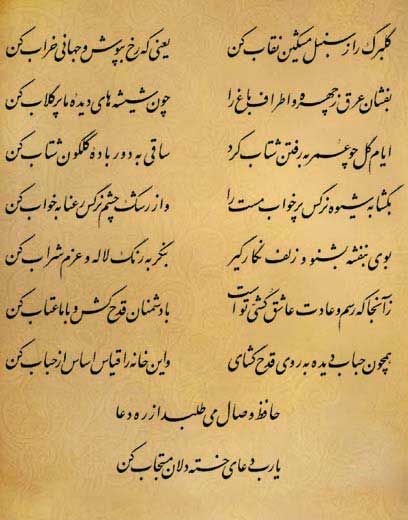 گلبرگ را ز سنبل مشکین نقاب کن یعنی که رخ بپوش و جهانی خراب کن
بفشان عرق ز چهره و اطراف باغ را چون شیشه‌های دیده ما پر گلاب کن
ایام گل چو عمر به رفتن شتاب کرد ساقی به دور باده گلگون شتاب کن
بگشا به شیوه نرگس پرخواب مست را و از رشک چشم نرگس رعنا به خواب کن
بوی بنفشه بشنو و زلف نگار گیر بنگر به رنگ لاله و عزم شراب کن
زآنجا که رسم و عادت عاشق‌کشی تو است با دشمنان قدح کش و با ما عتاب کن
همچون حباب دیده به روی قدح گشای و این خانه را قیاس اساس از حباب کن
حافظ وصال می‌طلبد از ره دعا
یا رب دعای خسته دلان مستجاب کن